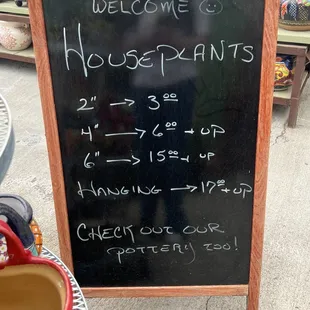 WELCOME ☺
HOUSEPLANTS
2" → 3.00
4" → 6.00 + UP
6" → 15.00 + UP
HANGING → 17.00 + UP
CHECK OUT OUR
POTTERY TOO!